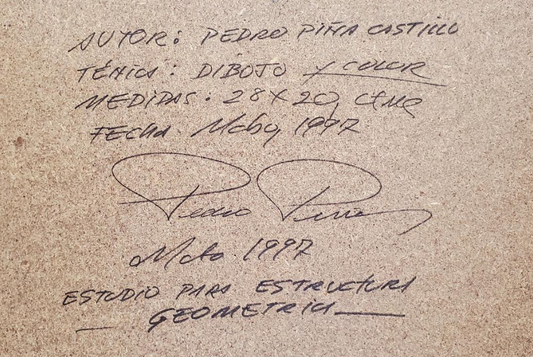 AUTOR: PEDRO PIÑA CASTILLO
TÉNICA: DIBOJO Y COLOR
MEDIDAS: 28 X 20, CTMS
FECHA Mcbo, 1997
Pedro Piña
Mcbo. 1997
ESTUDIO PARA ESTRUCTURA
GEOMETRICA